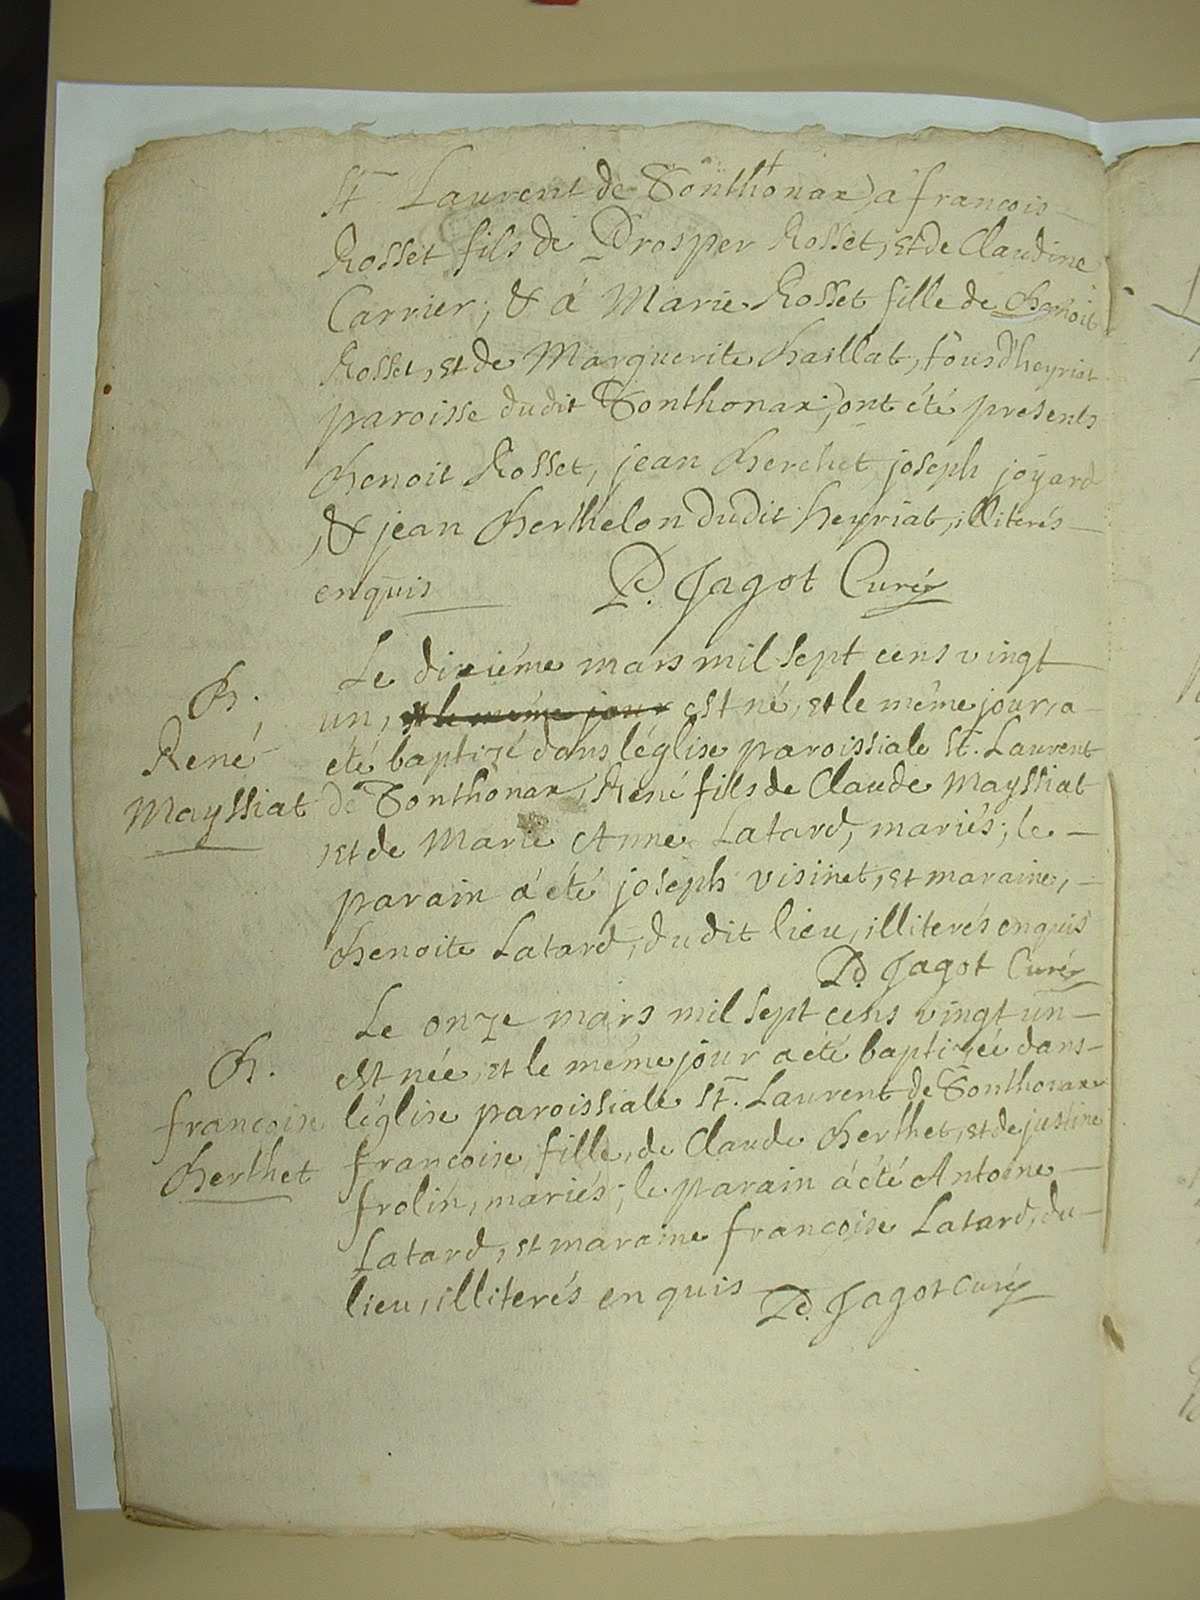 St Laurent de Sonthonax) a françois
Rosset fils de Prosper Rosset, et de Claudine
Carrier; & á Marie Rosset fille de Benoit
Rosset, et de Marguerite Chaillat, tous d'heyriat
paroisse dudit Sonthonax; ont été presents
Benoit Rosset, jean Berchet joseph joyard
& jean Berthelon dudit heyriat, illiterés
enquis P. Jagot Curé
Le dixiéme mars mil sept cens vingt
un, et le méme jour est né, et le méme jour, a
eté baptizé dans léglise paroissiale St. Laurent
de Sonthonax, René fils de Claude Mayssiat
et de Marie Anne Latard, mariés; le
parain á été joseph visinet, et maraine,
Benoite Latard, dudit lieu, illiterés enquis
Pd. Jagot Curé
B.
René
Mayssiat
Le onze mars mil sept cens vingt un
est née, et le méme jour a eté baptizée dans
léglise paroissiale St. Laurent de Sonthonax
francoise, fille, de Claude Berthet, et de justine
frolin, mariés; le parain á été Antoine
Latard, et maraine françoise Latard, du
lieu, illiterés enquis Pd. Jagot curé
B.
francoise
Berthet